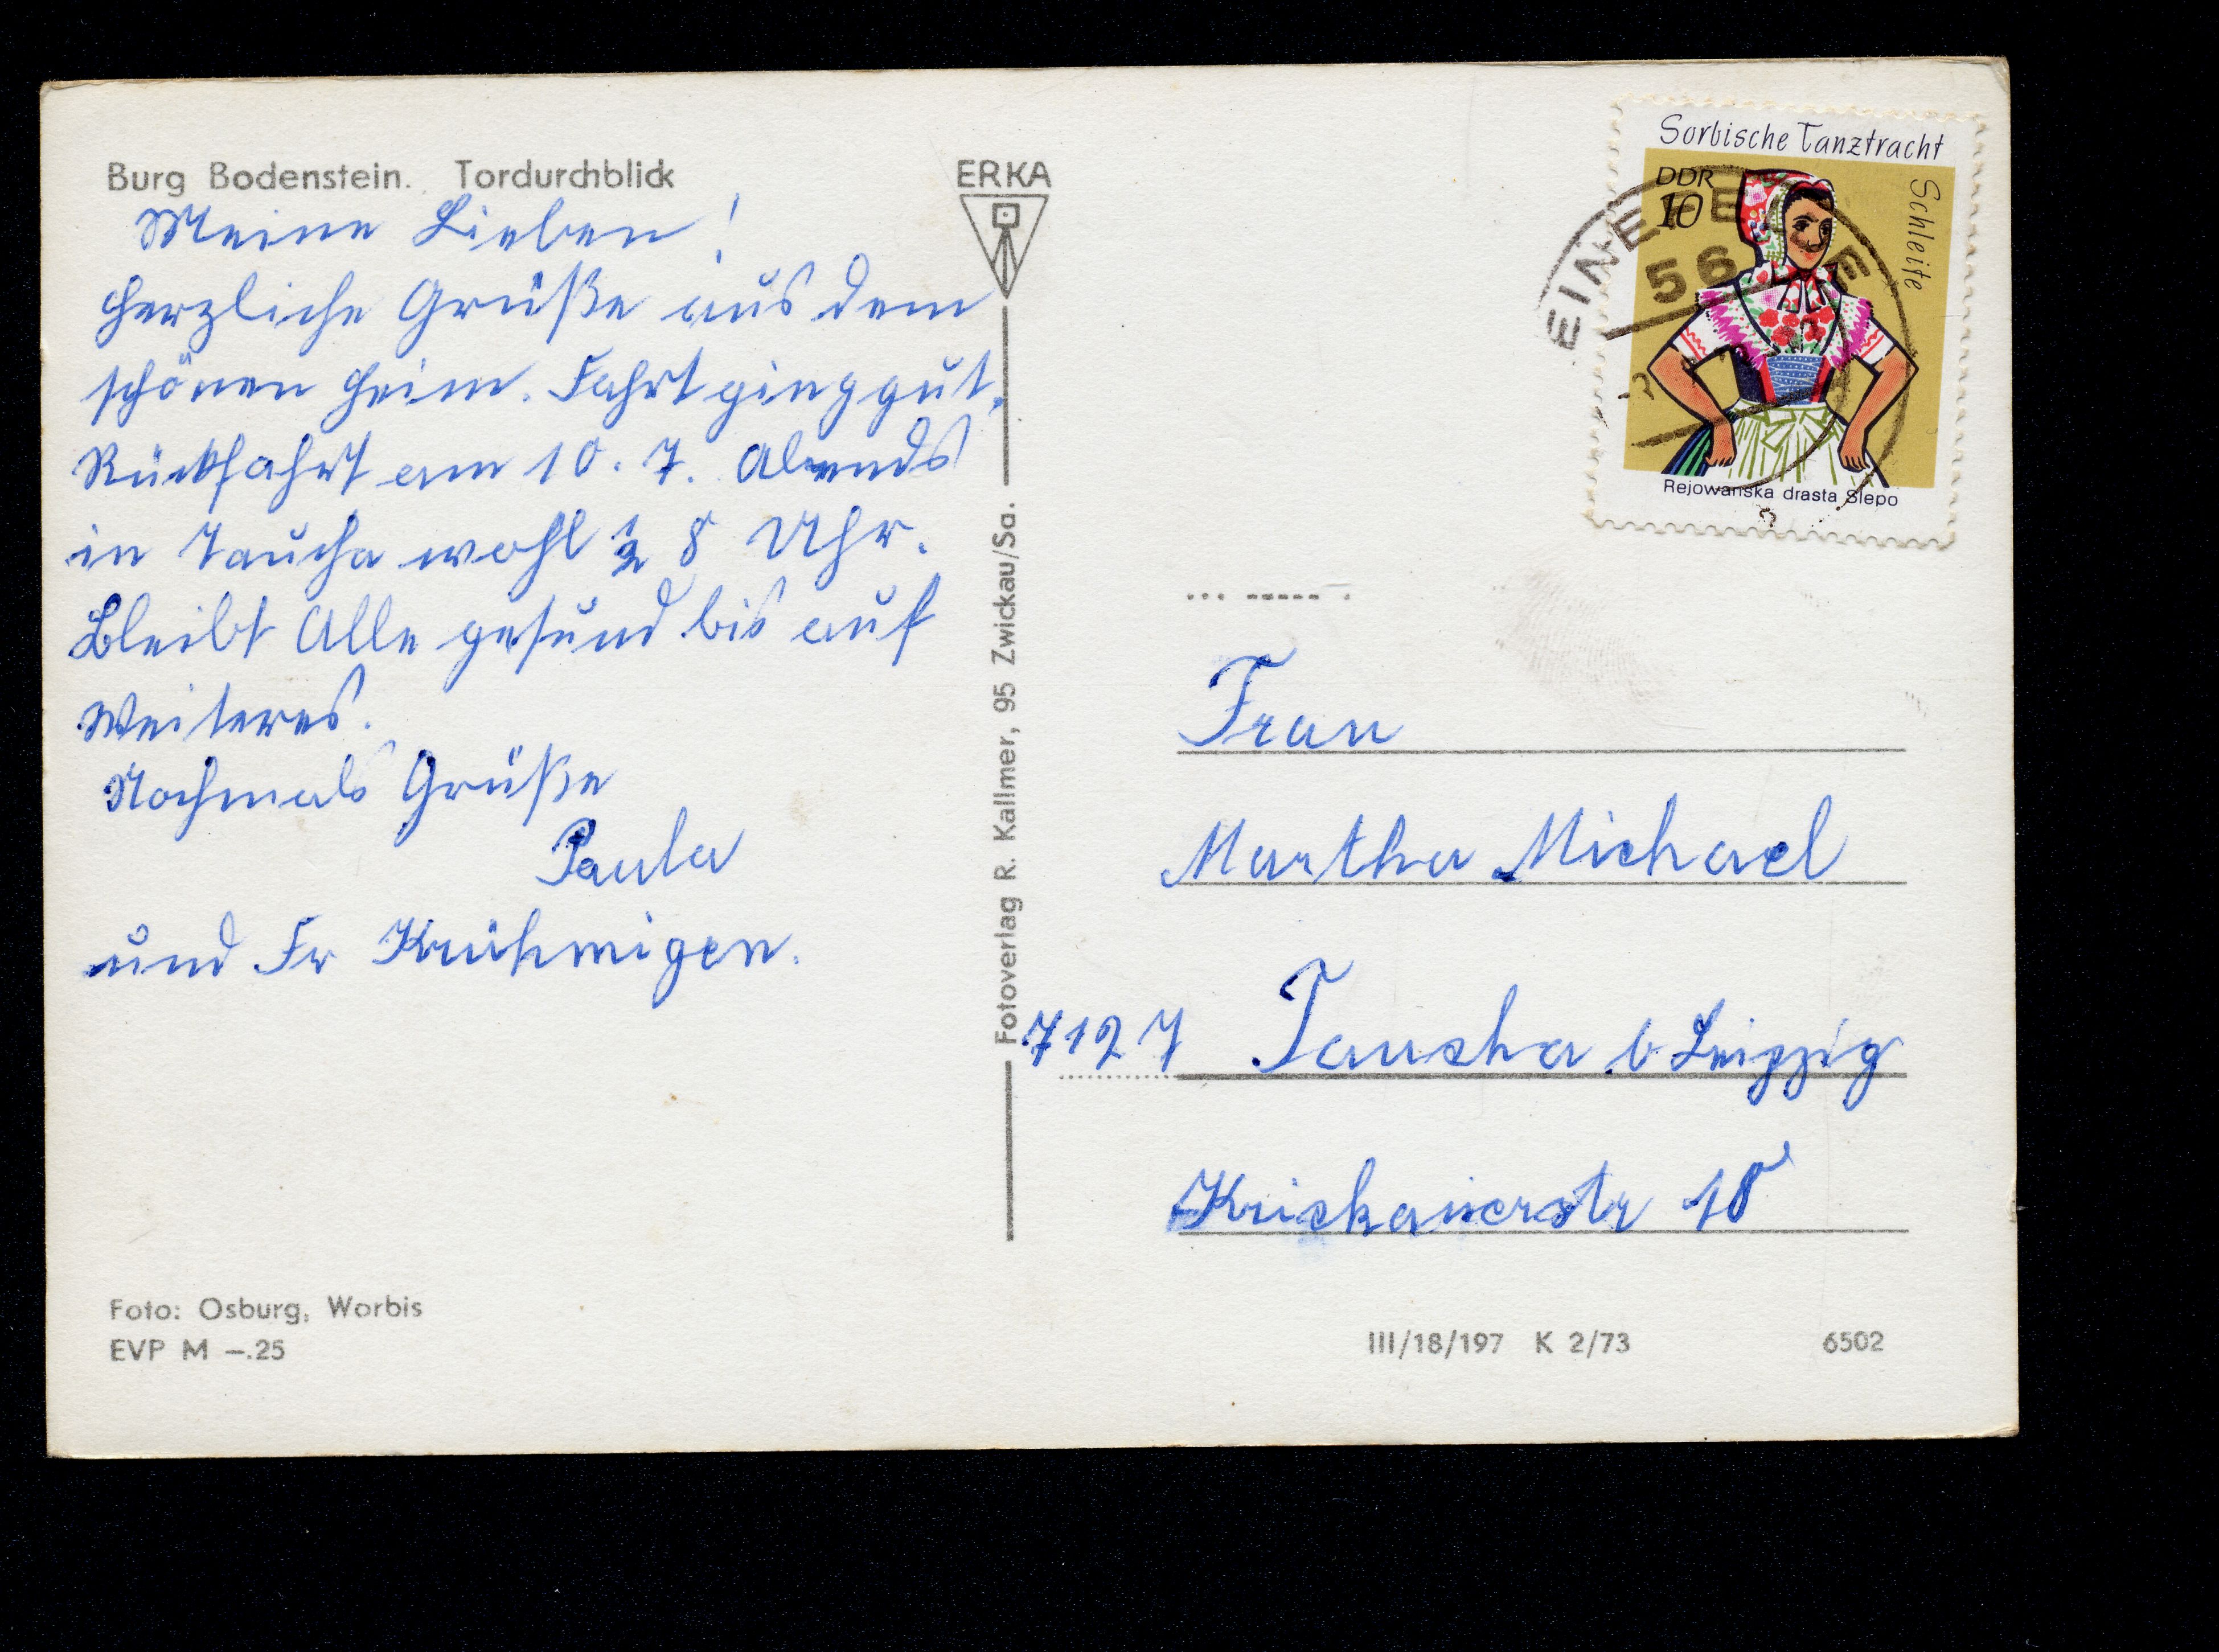 Burg Bodenstein. Tordurchblick
Meine Lieben!
Herzliche Grüße aus dem
schönen Heim. Fahrt ging gut.
Rückfahrt am 10. 7. Abends
in Taucha wohl ½ 8 Uhr.
Bleibt Alle gesund bis auf
Weiteres.
Nochmals Grüße
Paula
und Fr Krühmigen.
Foto: Osburg, Worbis
EVP M –.25
ERKA
Fotoverlag R. Kallmer, 95 Zwickau/Sa.
Sorbische Tanztracht
DDR
10
Schleife
Rejowanska drasta Slepo
56
Frau
Martha Michael
7127 Taucha b Leipzig
III/18/197 K 2/73
6502